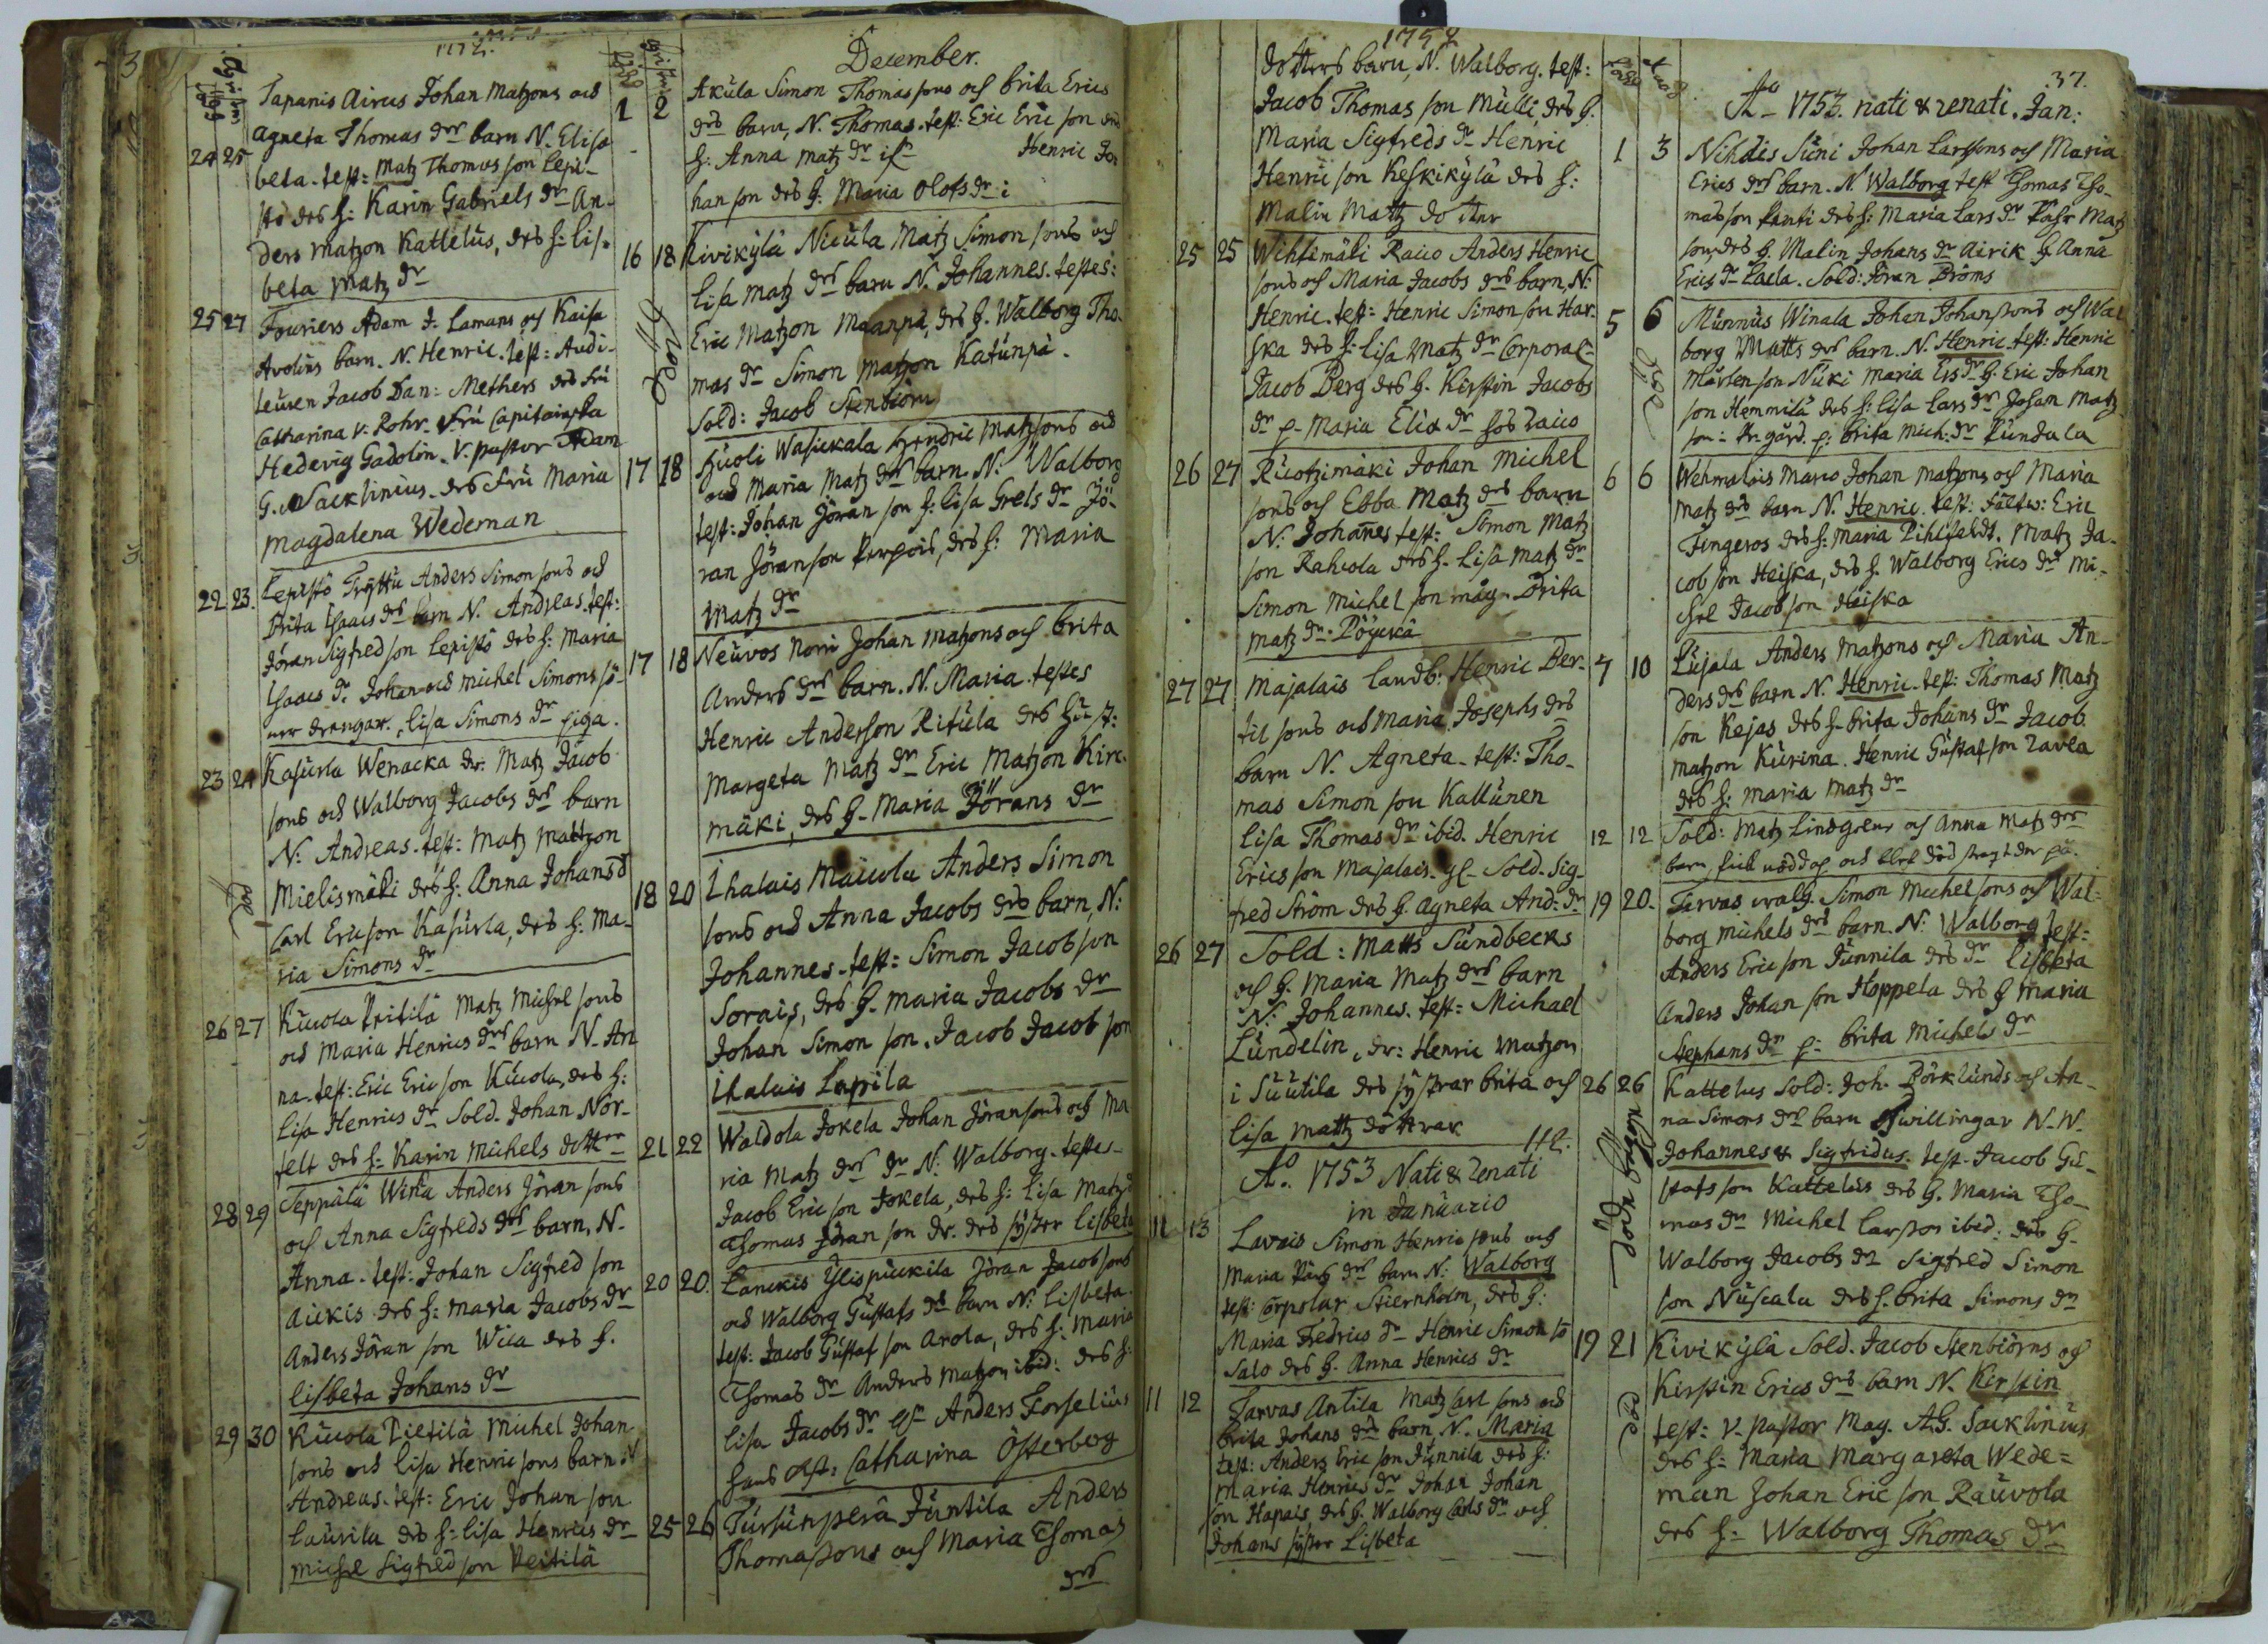 1752.
Tapanis Airus Johan Matzons och
Agneta Thomas dr barn N. Elisa
24 25 beta. test: Matz Thomasson Lepi-
stö des h: Karin Gabriels dr An-
ders Matzon Kattelus, des h: Lis-
beta Matz dr
25 27 Fouriers Adam J. Lamans och Kaisa
Avolins barn. N. Henric. test: Audi-
teuren Jacob Dan: Methers des fru
Catharina v. Rohr. Fru Capitainska
Hedevig Gadolin. V. pastor Adam
G. Sacklinius des Fru Maria
Magdalena Wedeman
22 23. Lepistö Tryttu Anders Simonsons och
Brita Isaacs drs barn N. Andreas. test:
Jöran Sigfredson Lepistö des h: Maria
Isaacs dr Johan och Michel Simons sö-
ner drengar. Lisa Simons dr piga.
23 24 Kasurla Wenacka dr. Matz Jacob
sons och Walborg Jacobs drs barn
N: Andreas. test: Matz Mattzon
Mielismäki des h: Anna Johansd
Carl Ericson Kasurla, des h: Ma-
ria Simons dr
26 27 Kucola Peitilä Matz Michelsons
och Maria Henrics drs barn N. An
na. test: Eric Ericson Kucola, des h:
Lisa Henrics dr Sold. Johan Nor-
felt des h: Karin Michels dotter
28 29 Seppälä Wika Anders Jöransons
och Anna Sigfreds drs barn, N.
Anna. test: Johan Sigfredson
Aukis des h: Maria Jacobs dr
Anders Jöranson Wica des h.
Lisbeta Johans dr
29 30 Kucola Pietilä Michel Johan
sons och Lisa Henricsons barn N
Andreas. test: Eric Johanson
Laurila des h: Lisa Henrics dr
Michel Sigfredson Peitilä
December.
1 2 Akula Simon Thomassons och Brita Erics
drs barn, N. Thomas. test: Eric Ericson
h: Anna Matz dr Henric Jo
hanson des h: Maria Olofs dr i
16 18 Kivikylä Nicula Matz Simonsons och
Lisa Matz drs barn N. Johannes. testes:
Eric Matzon Maanpä, des h. Walborg Tho-
mas dr Simon Matzon Katunpä.
Sold: Jacob Stenbiörn
17 18 Huoli Wasickala Hendric Matzsons och
och Maria Matz drs barn. N: Walborg
test: Johan Jöranson h: Lisa Grels dr Jö-
ran Jöranson Perhois, des h: Maria
Matz dr
17 18 Neuvos Nomi Johan Matzons och Brita
Anders drs barn. N. Maria. testes
Henric Anderson Ritula des Hust:
Margeta Matz dr Eric Matzon Kirc-
mäki, des h. Maria Jörans dr
18 20 Ihalais Maicola Anders Simon
sons och Anna Jacobs drs barn, N:
Johannes. test: Simon Jacobson
Sorais, des h. Maria Jacobs dr
Johan Simonson. Jacob Jacobson
Ihalais Lapila
21 22 Waldola Jokela Johan Jöransons och Ma
ria Matz drs dr N: Walborg. testes.
Jacob Ericson Jokela, des h: Lisa Matz d
Thomas Jöranson dr. des syster Lisbeta
20 20. Lanckis Ylispickila Jöran Jacobsons
och Walborg Gustafs drs barn N: Lisbeta.
test: Jacob Gustafson Arola, des h: Maria
Thomas dr Anders Matzon ibid: des h:
Lisa Jacobs dr Anders Forselius
hans Catharina Österberg
25 26 Tursunperä Juntila Anders
Thomassons och Maria Thomas
drs
1752
dotters barn, N. Walborg. test:
Jacob Thomasson Mulli, des h.
Maria Sigfreds dr Henric
Henricson Keskikylä des h:
Malin Matz dotter
25 25 Wihlimäki Raico Anders Henric
sons och Maria Jacobs drs barn, N:
Henric. test: Henric Simonson Har-
ska des h: Lisa Matz dr Corporal
Jacob Berg des h. Kirstin Jacobs
dr p. Maria Elis dr hos Raico
26 27 Ruotzimäki Johan Michel
sons och Ebba Matz drs barn
N: Johañes test: Simon Matz
son Rahcola des h. Lisa Matz dr
Simon Michelson måg. Brita
Matz dr. Pöyckä
27 27 Majalais Landb: Henric Ber-
til sons och Maria Josephs drs
barn N. Agneta. test: Tho-
mas Simonson Kallunen
Lisa Thomas dr ibid. Henric
Ericsson Majalais. Sold. Sig-
fred Ström des h. Agneta And: dr
26 27 Sold: Matts Sundbecks
och h. Maria Matz drs barn
N: Johannes. test: Michael
Lundelin, dr: Henric Matzon
i Suutila des systrar Brita och
Lisa Mattz döttrar
112.
Ao. 1753 Nati & Renati
in Januario
11 13 Lavais Simon Henricsons och
Maria Pärs drs barn N: Walborg
test: Corpolar Stiernholm, des h:
Maria Fredrics dr Henric Simonso
Salo des h. Anna Henrics dr
11 12 Tarvas Antila Matz Carlsons och
Brita Johans drs barn N. Maria
test: Anders Ericson Junnila des h:
Maria Henrics dr Johan Johan
son Hapais, des h. Walborg Carls dr och
Johans syster Lisbeta
37.
Ao 1753. nati & renati. Jan:
1 3 Nihdis Suni Johan Larssons och Maria
Erics drs barn. N. Walborg test Thomas Tho-
masson Panti des h: Maria Lars dr Matz
son, des h. Malin Johans dr Airik h. Anna
Erics dr Laela. Sold: Jöran Broms
5 6 Munnus Winala Johan Johanssons och Wal
borg Matts drs barn. N. Henric. test: Henric
Mårtenson Nuki Maria Ers dr h. Eric Johan
son Hemmilä des h: Lisa Lars dr Johan Matz
son: Pr. gård. p: Brita Mich: dr Pundala
6 6 Wehmalais Marco Johan Matzons och Maria
Matz drs barn N. Henric. test: Fältw: Eric
Fingeros des h: Maria Pihlfeldt. Matz Ja-
cobson Heiska, des h. Walborg Erics dr Mi-
chel Jacobson Heiska
7 10 Lujala Anders Matzons och Maria An-
ders drs barn N. Henric. test: Thomas Matz
son Kejas des h. Brita Johans dr Jacob
Matzon Kurina. Henric Gustafson Zavea
des h: Maria Matz dr
12 12 Sold: Matz Lindgrens och Anna Matz drs
barn, fick nöddop och blef död strax der på.
19 20. Tarvas Simon Michelsons och Wal-
borg Michels drs barn. N: Walborg test:
Anders Ericson Junnila des dr Lisbeta
Anders Johanson Hoppela des h Maria
Stephans dr p: Brita Michels dr
26 26 Kattelus Sold: Joh. Börklunds och An-
na Simons drs barn Twillingar N.N.
Johannes & Sigfridus. test. Jacob Gu-
stafsson Kattelus des h. Maria Tho-
mas dr Michel Larsson ibid: des h.
Walborg Jacobs dr Sigfred Simon
son Nuscala des h. Brita Simons dr
19 21 Kivikylä Sold. Jacob Stenbiörns och
Kirstin Erics drs barn N. Kirstin
test: V. Pastor Mag. A.G. Sacklinius
des h: Maria Margareta Wede=
man Johan Ericson Rauvola
des h: Walborg Thomas dr